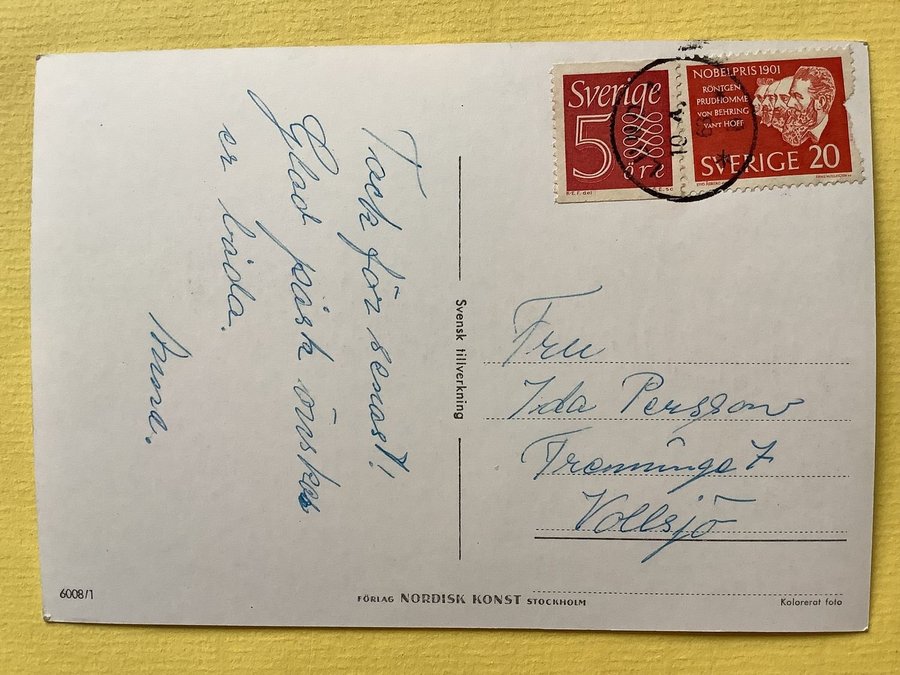 Tack för senast!
Glad påsk önskas
er båda.
Svensk tillverkning
Sverige
5 öre
NOBELPRIS 1901
RÖNTGEN
PRUDHOMME
VON BEHRING
VANT HOFF
SVERIGE 20
Fru
Ida Persson
Tranninge 7
Vollsjö
6008/1
FÖRLAG NORDISK KONST STOCKHOLM
Kolorerat foto